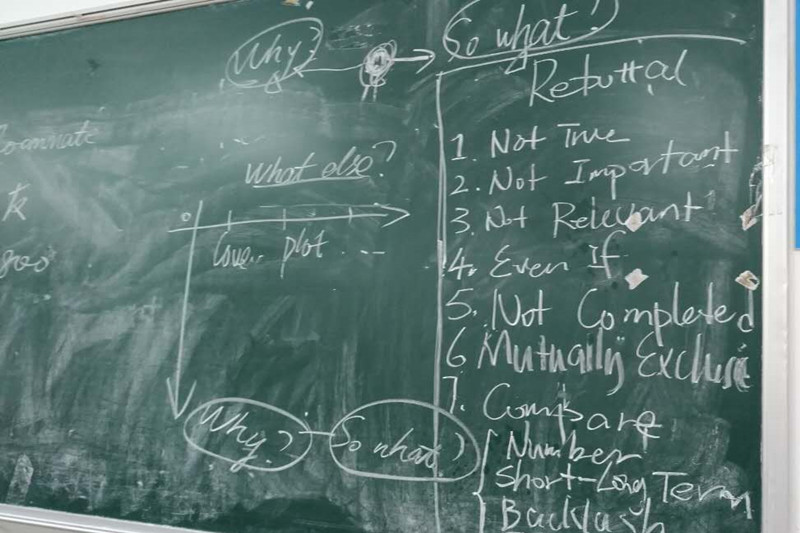 Why?
So what?
What else?
0
love.. plot ...
Why? So what?
Rebuttal
1. Not True
2. Not Important
3. Not Relevant
4. Even If
5. Not Completed
6 Mutually Exclusive
7. Compare
Number
Short-Long Term
Backlash